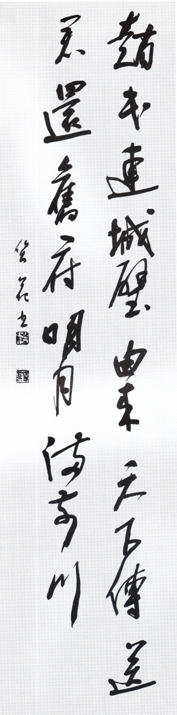 趙氏連城璧由來天下傳送
君還舊府明月滿前川
書